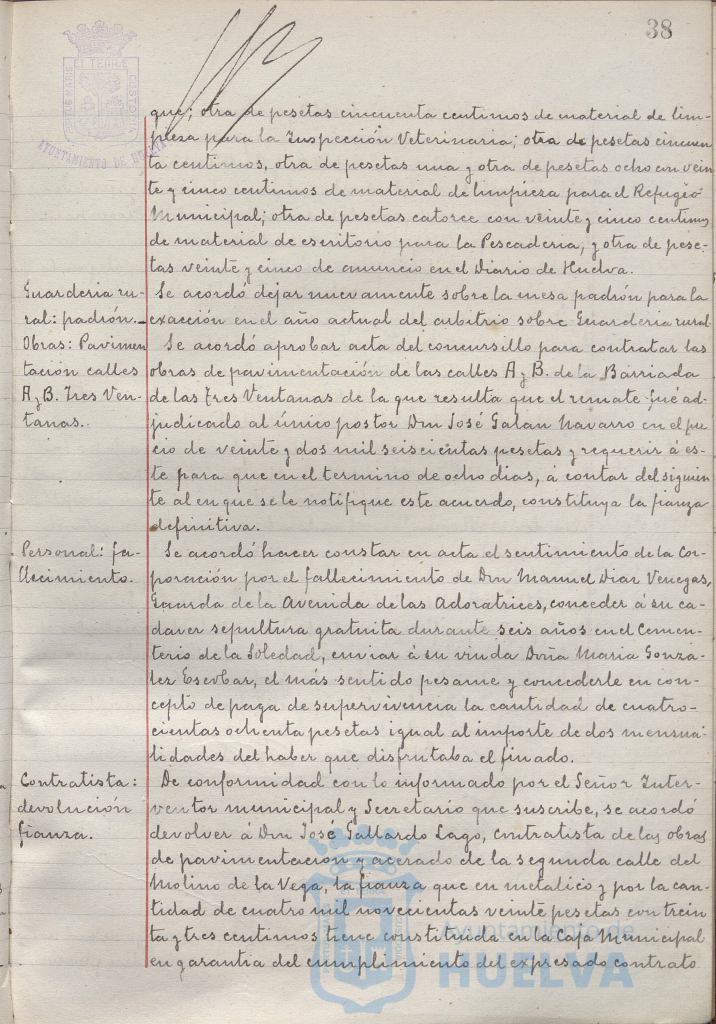 38
AYUNTAMIENTO DE HUELVA
que; otra de pesetas cincuenta centimos de material de lim-
pieza para la Inspección Veterinaria; otra de pesetas cincuen
ta centimos, otra de pesetas una y otra de pesetas ocho con vein
te y cinco centimos de material de limpieza para el Refugio
Municipal; otra de pesetas catorce con veinte y cinco centimos
de material de escritorio para la Pescaderia, y otra de pese-
tas veinte y cinco de anuncio en el Diario de Huelva.
Guarderia ru-
ral: padrón.
Se acordó dejar nuevamente sobre la mesa padrón para la
exacción en el año actual del arbitrio sobre Guarderia rural.
Obras: Pavimen
tación calles
A y B. Tres Ven-
tanas.
Se acordó aprobar acta del concursillo para contratar las
obras de pavimentación de las calles A y B. de la Barriada
de las Tres Ventanas de la que resulta que el remate fué ad-
judicado al único postor Don José Galan Navarro en el pre
cio de veinte y dos mil seiscientas pesetas y requerir á es-
te para que en el termino de ocho dias, á contar del siguien
te al en que se le notifique este acuerdo, constituya la fianza
definitiva.
Personal: fa-
llecimiento.
Se acordó hacer constar en acta el sentimiento de la Cor
poración por el fallecimiento de Don Manuel Diaz Venegas,
Guarda de la Avenida de las Adoratrices, conceder á su ca-
daver sepultura gratuita durante seis años en el Cemen-
terio de la Soledad, enviar á su viuda Doña Maria Gonza-
lez Escobar, el más sentido pesame y concederle en con-
cepto de paga de supervivencia la cantidad de cuatro-
cientas ochenta pesetas igual al importe de dos mensua-
lidades del haber que disfrutaba el finado.
Contratista:
devolución
fianza.
De conformidad con lo informado por el Señor Inter-
ventor municipal y Secretario que suscribe, se acordó
devolver á Don José Gallardo Lago, contratista de las obras
de pavimentación y acerado de la segunda calle del
Molino de la Vega, la fianza que en metalico y por la can-
tidad de cuatro mil novecientas veinte pesetas con trein
ta y tres centimos tiene constituida en la Caja Municipal
en garantia del cumplimiento del expresado contrato
Ayuntamiento de
HUELVA